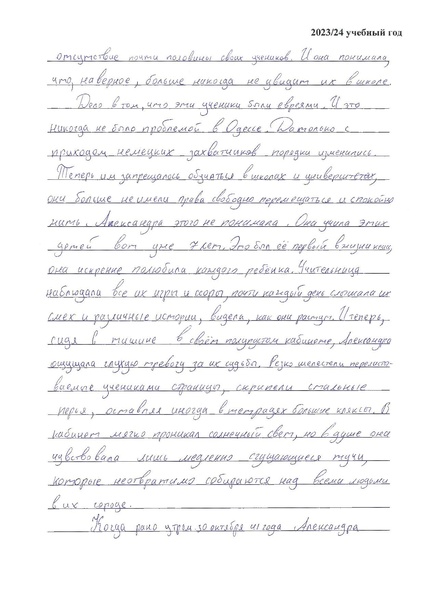 2023/24 учебный год
отсутствие почти половины своих учеников. И она понимала,
что, наверное, больше никогда не увидит их в школе.
Дело в том, что эти ученики были евреями. И это
никогда не было проблемой в Одессе. Да только с
приходом немецких захватчиков порядки изменились.
Теперь им запрещалось обучаться в школах и университетах,
они больше не имели права свободно перемещаться и спокойно
жить. Александра этого не понимала. Она учила этих
детей вот уже 7 лет. Это был её первый в жизни класс,
она искренне полюбила каждого ребёнка. Учительница
наблюдала все их игры и ссоры, почти каждый день слышала их
смех и различные истории, видела, как они растут. И теперь,
сидя в тишине в своём полупустом кабинете, Александра
ощущала глухую тревогу за их судьбы. Резко шелестели перелисты-
ваемые учениками страницы, скрипели стальные
перья, оставляя иногда в тетрадях большие кляксы. В
кабинет мягко проникал солнечный свет, но в душе она
чувствовала лишь медленно сгущающиеся тучи,
которые неотвратимо собираются над всеми людьми
в их городе.
Когда рано утром 30 октября 41 года Александра